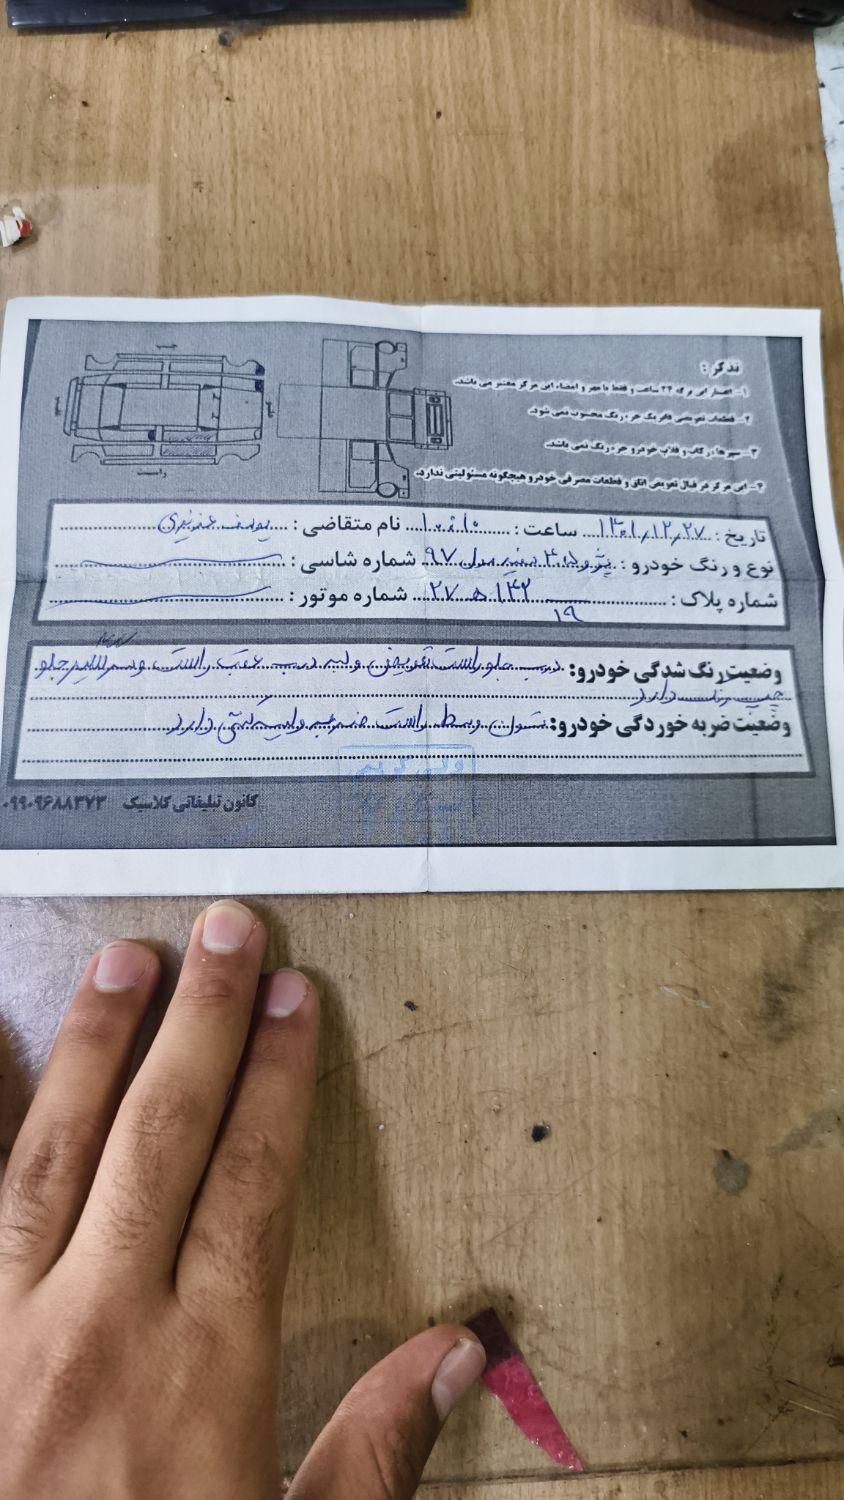 تذکر:
۱- اعتبار این برگه ۲۴ ساعت و فقط با مهر و امضاء این مرکز معتبر می باشد.
۲- قطعات تعویضی فابریک جزء رنگ محسوب نمی شود.
۳- سپرها، رکاب و قلاب خودرو جزء رنگ نمی باشد.
۴- این مرکز در قبال تعویض اتاق و قطعات مصرفی خودرو هیچگونه مسئولیتی ندارد.
چپ
راست
تاریخ: ۱۴۰۱/۱۲/۲۷ ساعت: ۱۰:۱۰ نام متقاضی: یوسف
نوع و رنگ خودرو: پژو ۴۰۵ سفید مدل ۹۷ شماره شاسی:
شماره پلاک: ۱۴۲ ه ۲۷ شماره موتور:
۱۹
وضعیت رنگ شدگی خودرو: درب جلو راست تعویض و لبه درب عقب راست و سر گلگیر جلو
چپ رنگ دارد
وضعیت ضربه خوردگی خودرو: ستون وسط راست ضربه و لیسه گیری دارد
کانون تبلیغاتی کلاسیک ۰۹۹۰۹۶۸۸۳۷۳